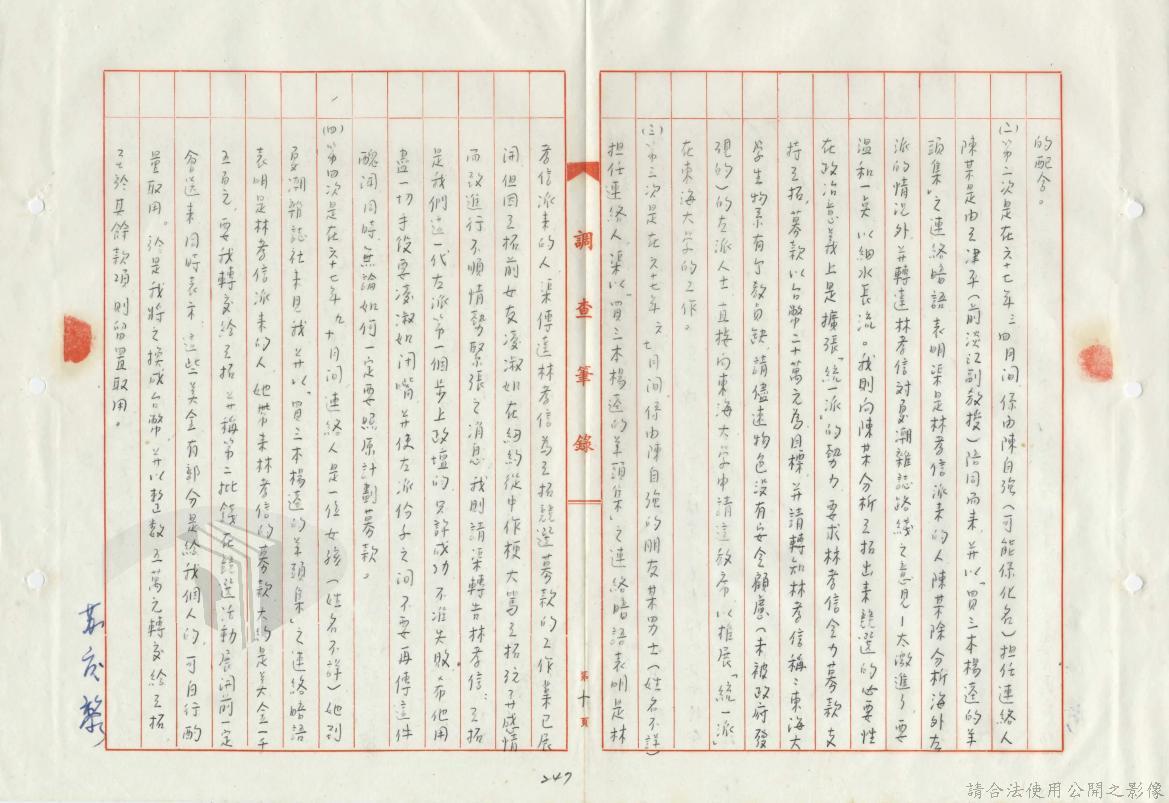 的配合。
(二)第二次是在六十七年三、四月間,係由陳自強(可能係化名)担任連絡人
陳某是由王津平(前淡江副教授)陪同而來,并以「買三本楊逵的羊
頭集」之連絡暗語表明渠是林孝信派來的人,陳某除分析海外左
派的情況外,并轉達林孝信對夏潮雜誌路綫之意見—太激進了,要
溫和一矣,以細水長流。我則向陳某分析王拓出來競選的必要性
在政治意義上是擴張「統一派」的勢力,要求林孝信全力募款支
持王拓,募款以台幣二十萬元為目標,并請轉知林孝信稱:東海大
學生物系有個教員缺,請儘速物色沒有安全顧慮(未被政府發
現的)的左派人士,直接向東海大學申請這教席,以推展「統一派」
在東海大學的工作。
(三)第三次是在六十七年六、七月間,係由陳自強的朋友某男士(姓名不詳)
担任連絡人,渠以「買三本楊逵的羊頭集」之連絡暗語表明是林
調查筆錄
第十頁
孝信派來的人,渠傳達林孝信為王拓競選募款的工作業已展
開,但因王拓前女友凌淑如在紐約從中作梗,大罵王拓玩弄感情
而致進行不順,情勢緊張之消息,我則請渠轉告林孝信:王拓
是我們這一代左派第一個步上政壇的,只許成功,不准失敗,希他用
盡一切手段要凌淑如閉嘴,并使左派份子之間不要再傳這件
醜聞,同時,無論如何一定要照原計劃募款。
(四)第四次是在六十七年九、十月間,連絡人是一位女孩(姓名不詳)她到
夏潮雜誌社來見我,并以「買三本楊逵的羊頭集」之連絡暗語
表明是林孝信派來的人,她帶來林孝信的募款大約是美金一千
五百元,要我轉交給王拓,并稱第二批錢在競選活動展開前一定
會送來,同時表示,這些美金有部分是給我個人的,可自行酌
量取用。於是我將之換成台幣,并以整數五萬元轉交給王拓
至於其餘款項則留置取用。
蘇慶黎
247
請合法使用公開之影像